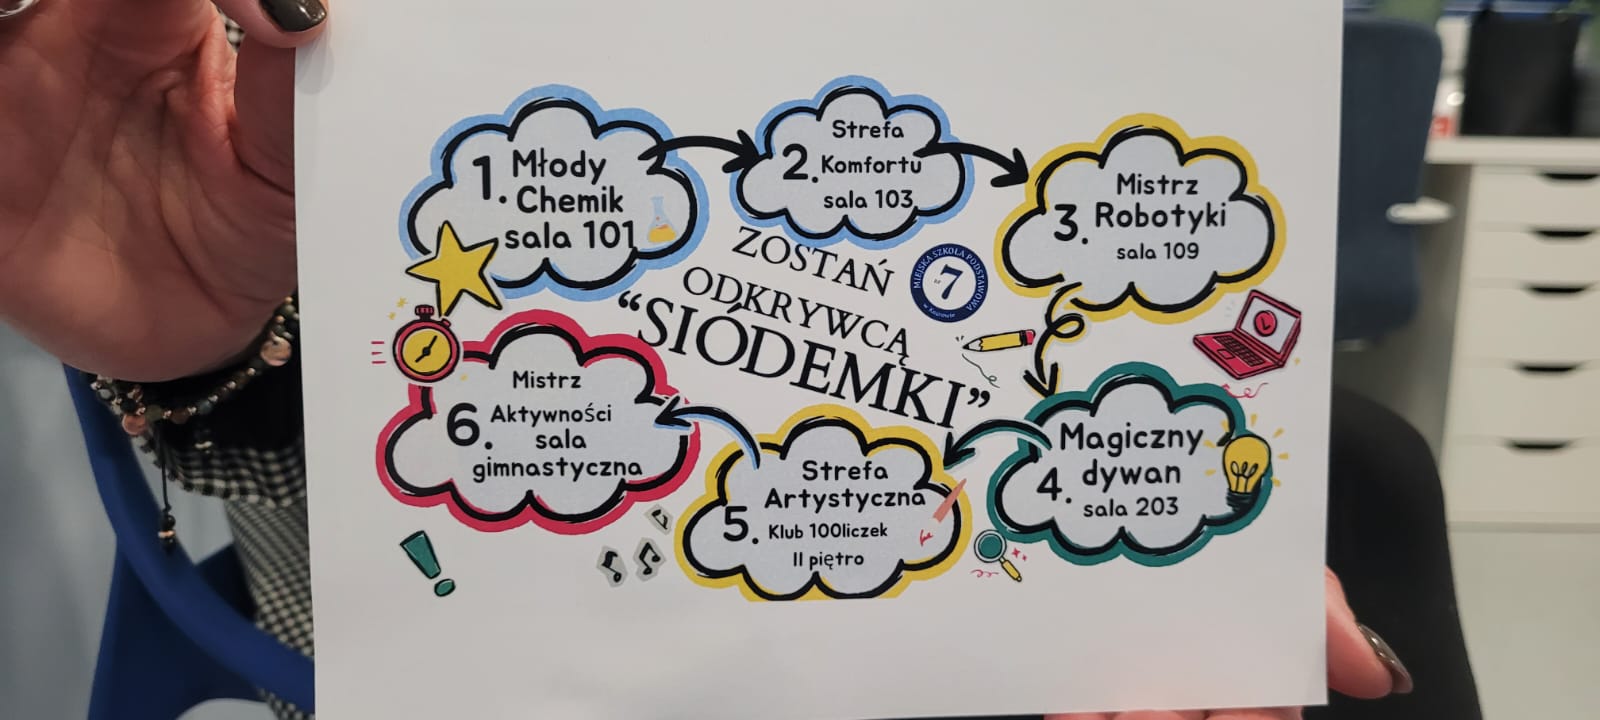 1. Młody
Chemik
sala 101
2. Strefa
Komfortu
sala 103
3. Mistrz
Robotyki
sala 109
ZOSTAŃ
ODKRYWCĄ
“SIÓDEMKI”
MIEJSKA SZKOŁA PODSTAWOWA
nr 7
w Knurowie
4. Magiczny
dywan
sala 203
5. Strefa
Artystyczna
Klub 100liczek
II piętro
6. Mistrz
Aktywności
sala
gimnastyczna